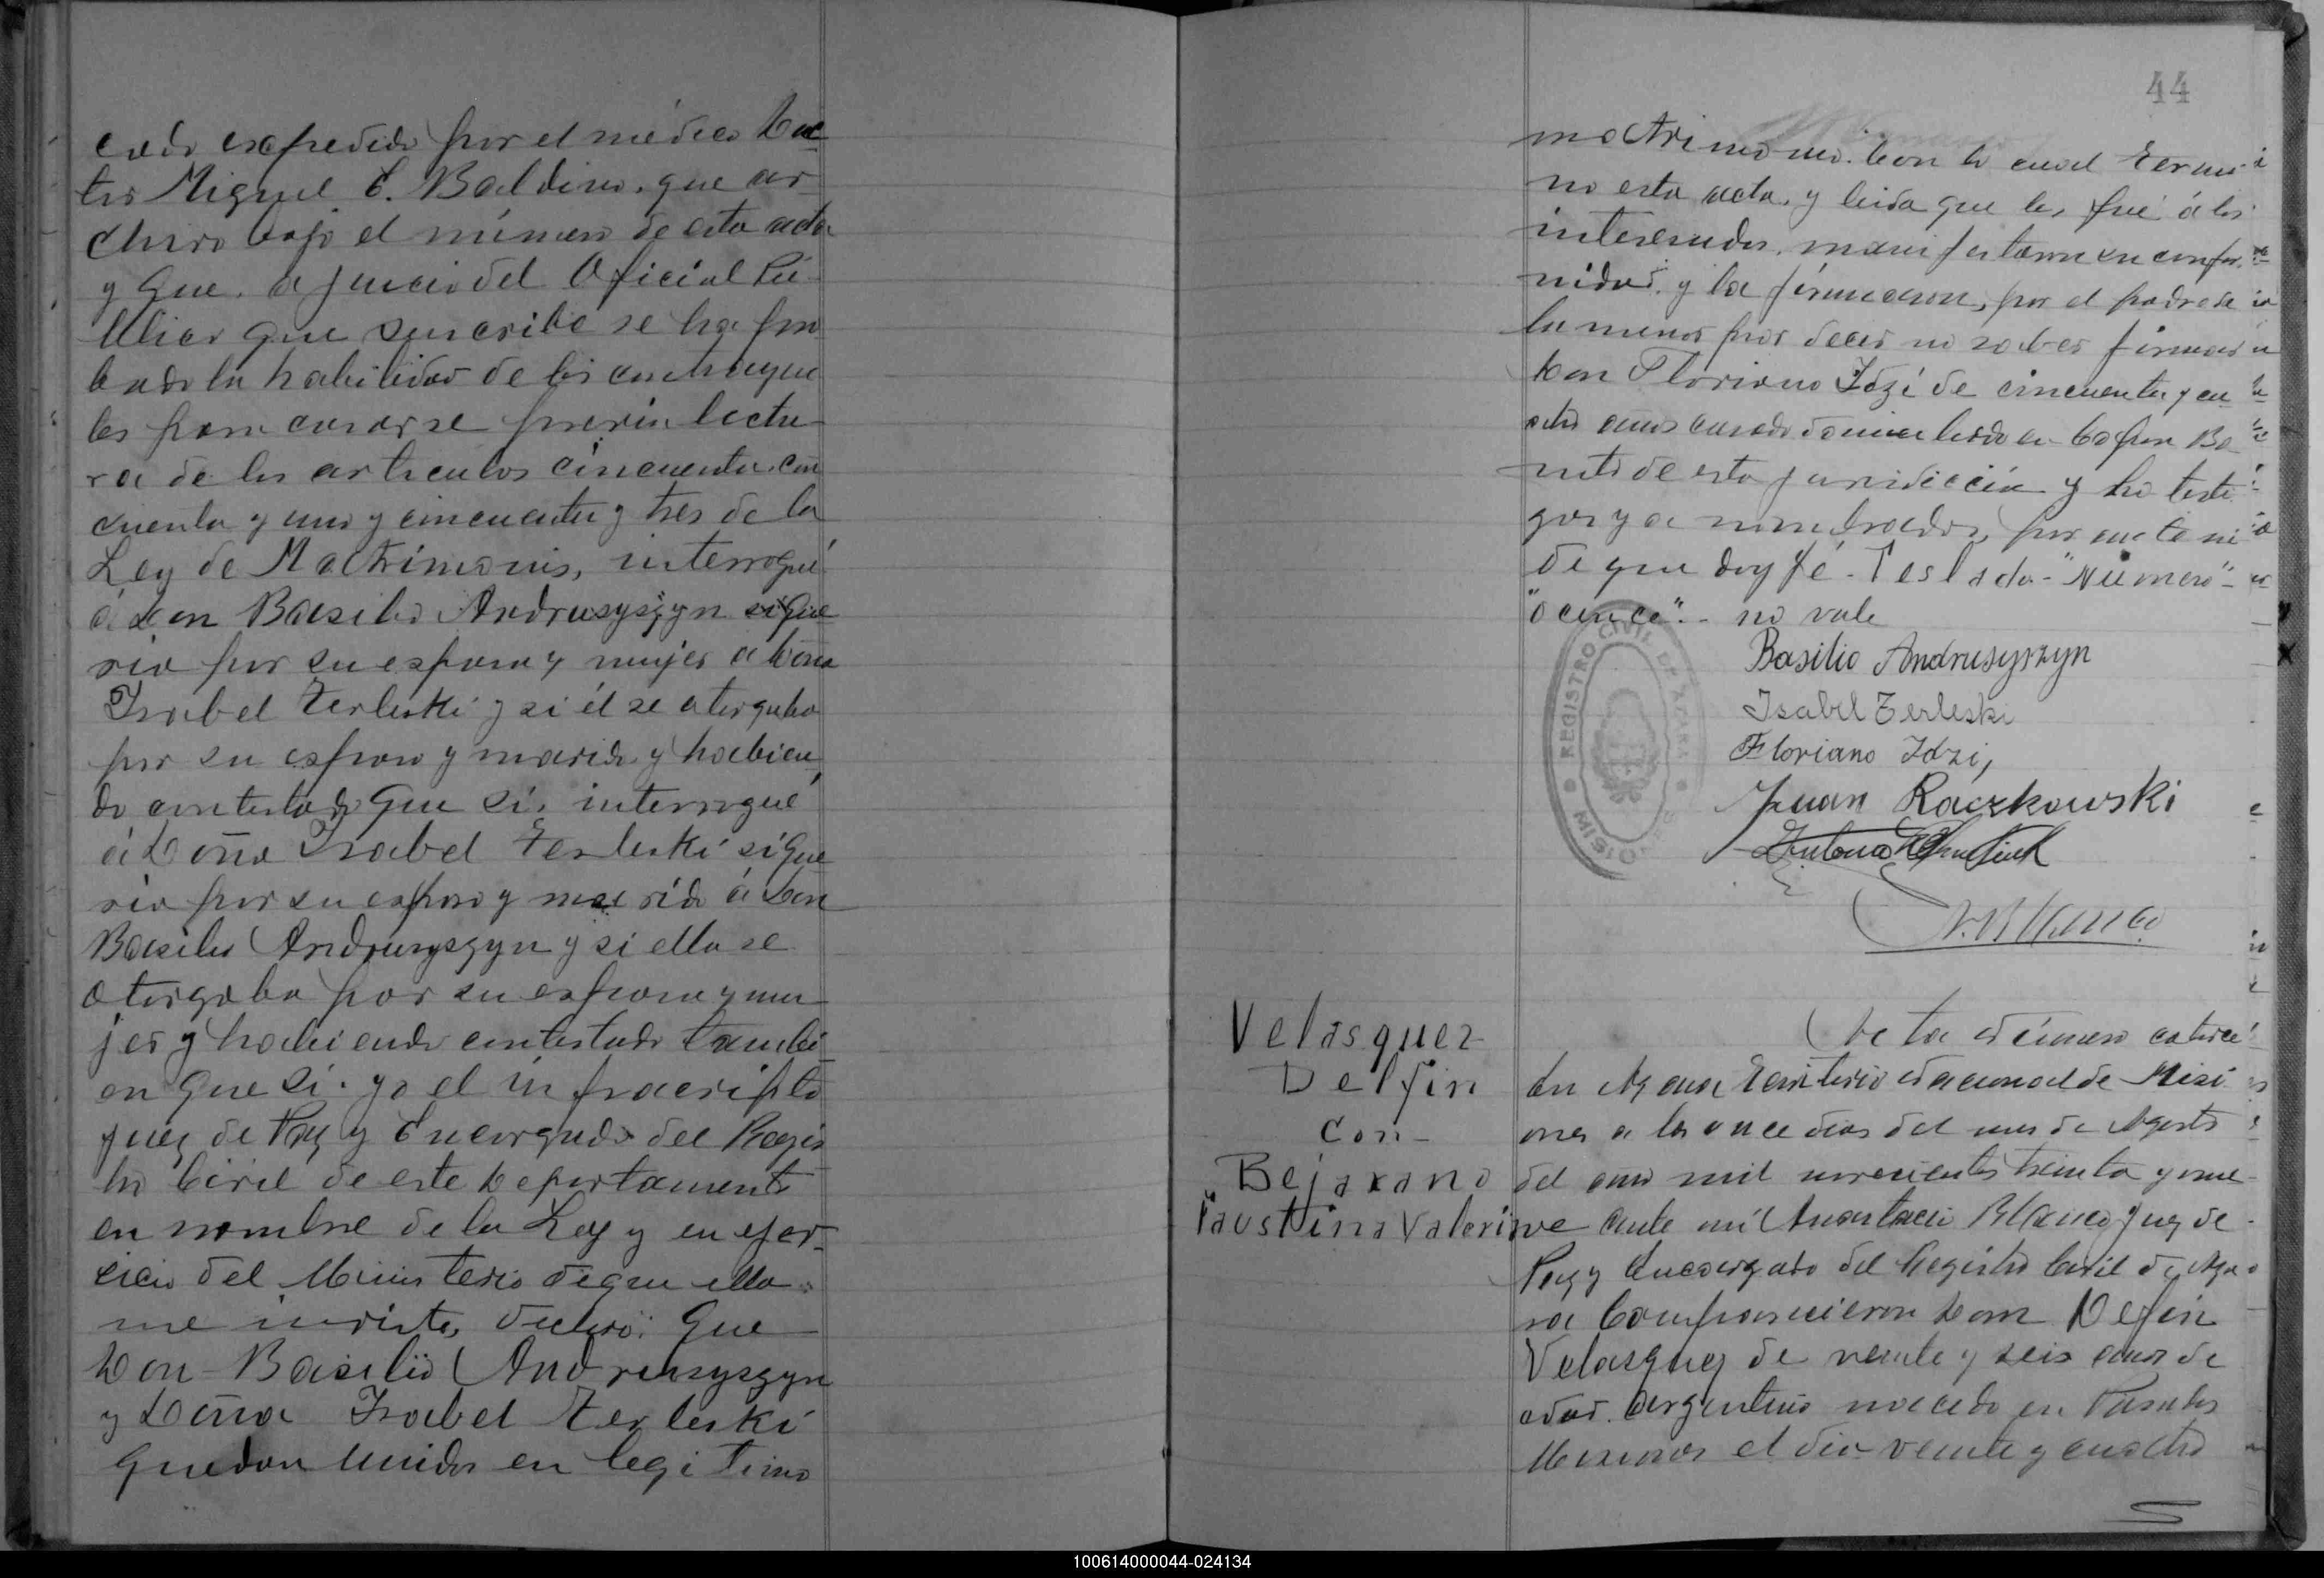 cado expedido por el médico Doc
tor Miguel C. Baldino, que ar
chivo bajo el número de esta acta
y que, a juicio del Oficial Pú-
blico que suscribe se ha pro
bado la habilidad de los contrayen
tes para casarse previa lectu
ra de los articulos cincuenta, cin
cuenta y uno y cincuenta y tres de la
Ley de Matrimonio, interrogué
á Don Basilio Andrusyszyn si que
ria por su esposa y mujer á Doña
Isabel Terleski y si él se otorgaba
por su esposo y marido y habien
do contestado que sí, interrogué
á Doña Isabel Terleski si que
ria por su esposo y marido á Don
Basilio Andrusyszyn y si ella se
otorgaba por su esposa y mu
jer y habiendo contestado tambi
en que sí. yo el infrascripto
Juez de Paz y Encargado del Regis
tro Civil de este Departamento
en nombre de la Ley y en ejer-
cicio del Ministerio de que ella
me inviste, declaro: Que
Don Basilio Andrusyszyn
y Doña Isabel Terleski
quedan unidos en legitimo
44
matrimonio. Con lo cual termi
no esta acta, y leida que les fué á los
interesados, manifestaron su confor
midad y la firmaron, por el padre de
la menor por decir no saber firmar
Don Floriano Idzi de cincuenta y cu
atro años casado domiciliado en Cerro Bo
nito de esta jurisdicción y los testi
gos ya nombrados, por ante mi
de que doy fé. Testado "Número"-
no vale
Basilio Andrusyszyn
Isabel Terleski
Floriano Idzi,
Juan Raczkowski
A. Blanco
REGISTRO CIVIL DE AZARA
MISIONES
Velasquez
Delfin
Con-
Bejarano
Faustina Valerine
Acta número catorce
En Azara Territorio Nacional de Misi
ones a los once dias del mes de Agosto
del año mil novecientos treinta y nue
ve ante mi Anastacio Blanco Juez de
Paz y Encargado del Registro Civil de Aza
ra Comparecieron Don Delfin
Velasquez de veinte y seis años de
edad, argentino nacido en
Misiones el dia veinte y cuatro
100614000044-024134